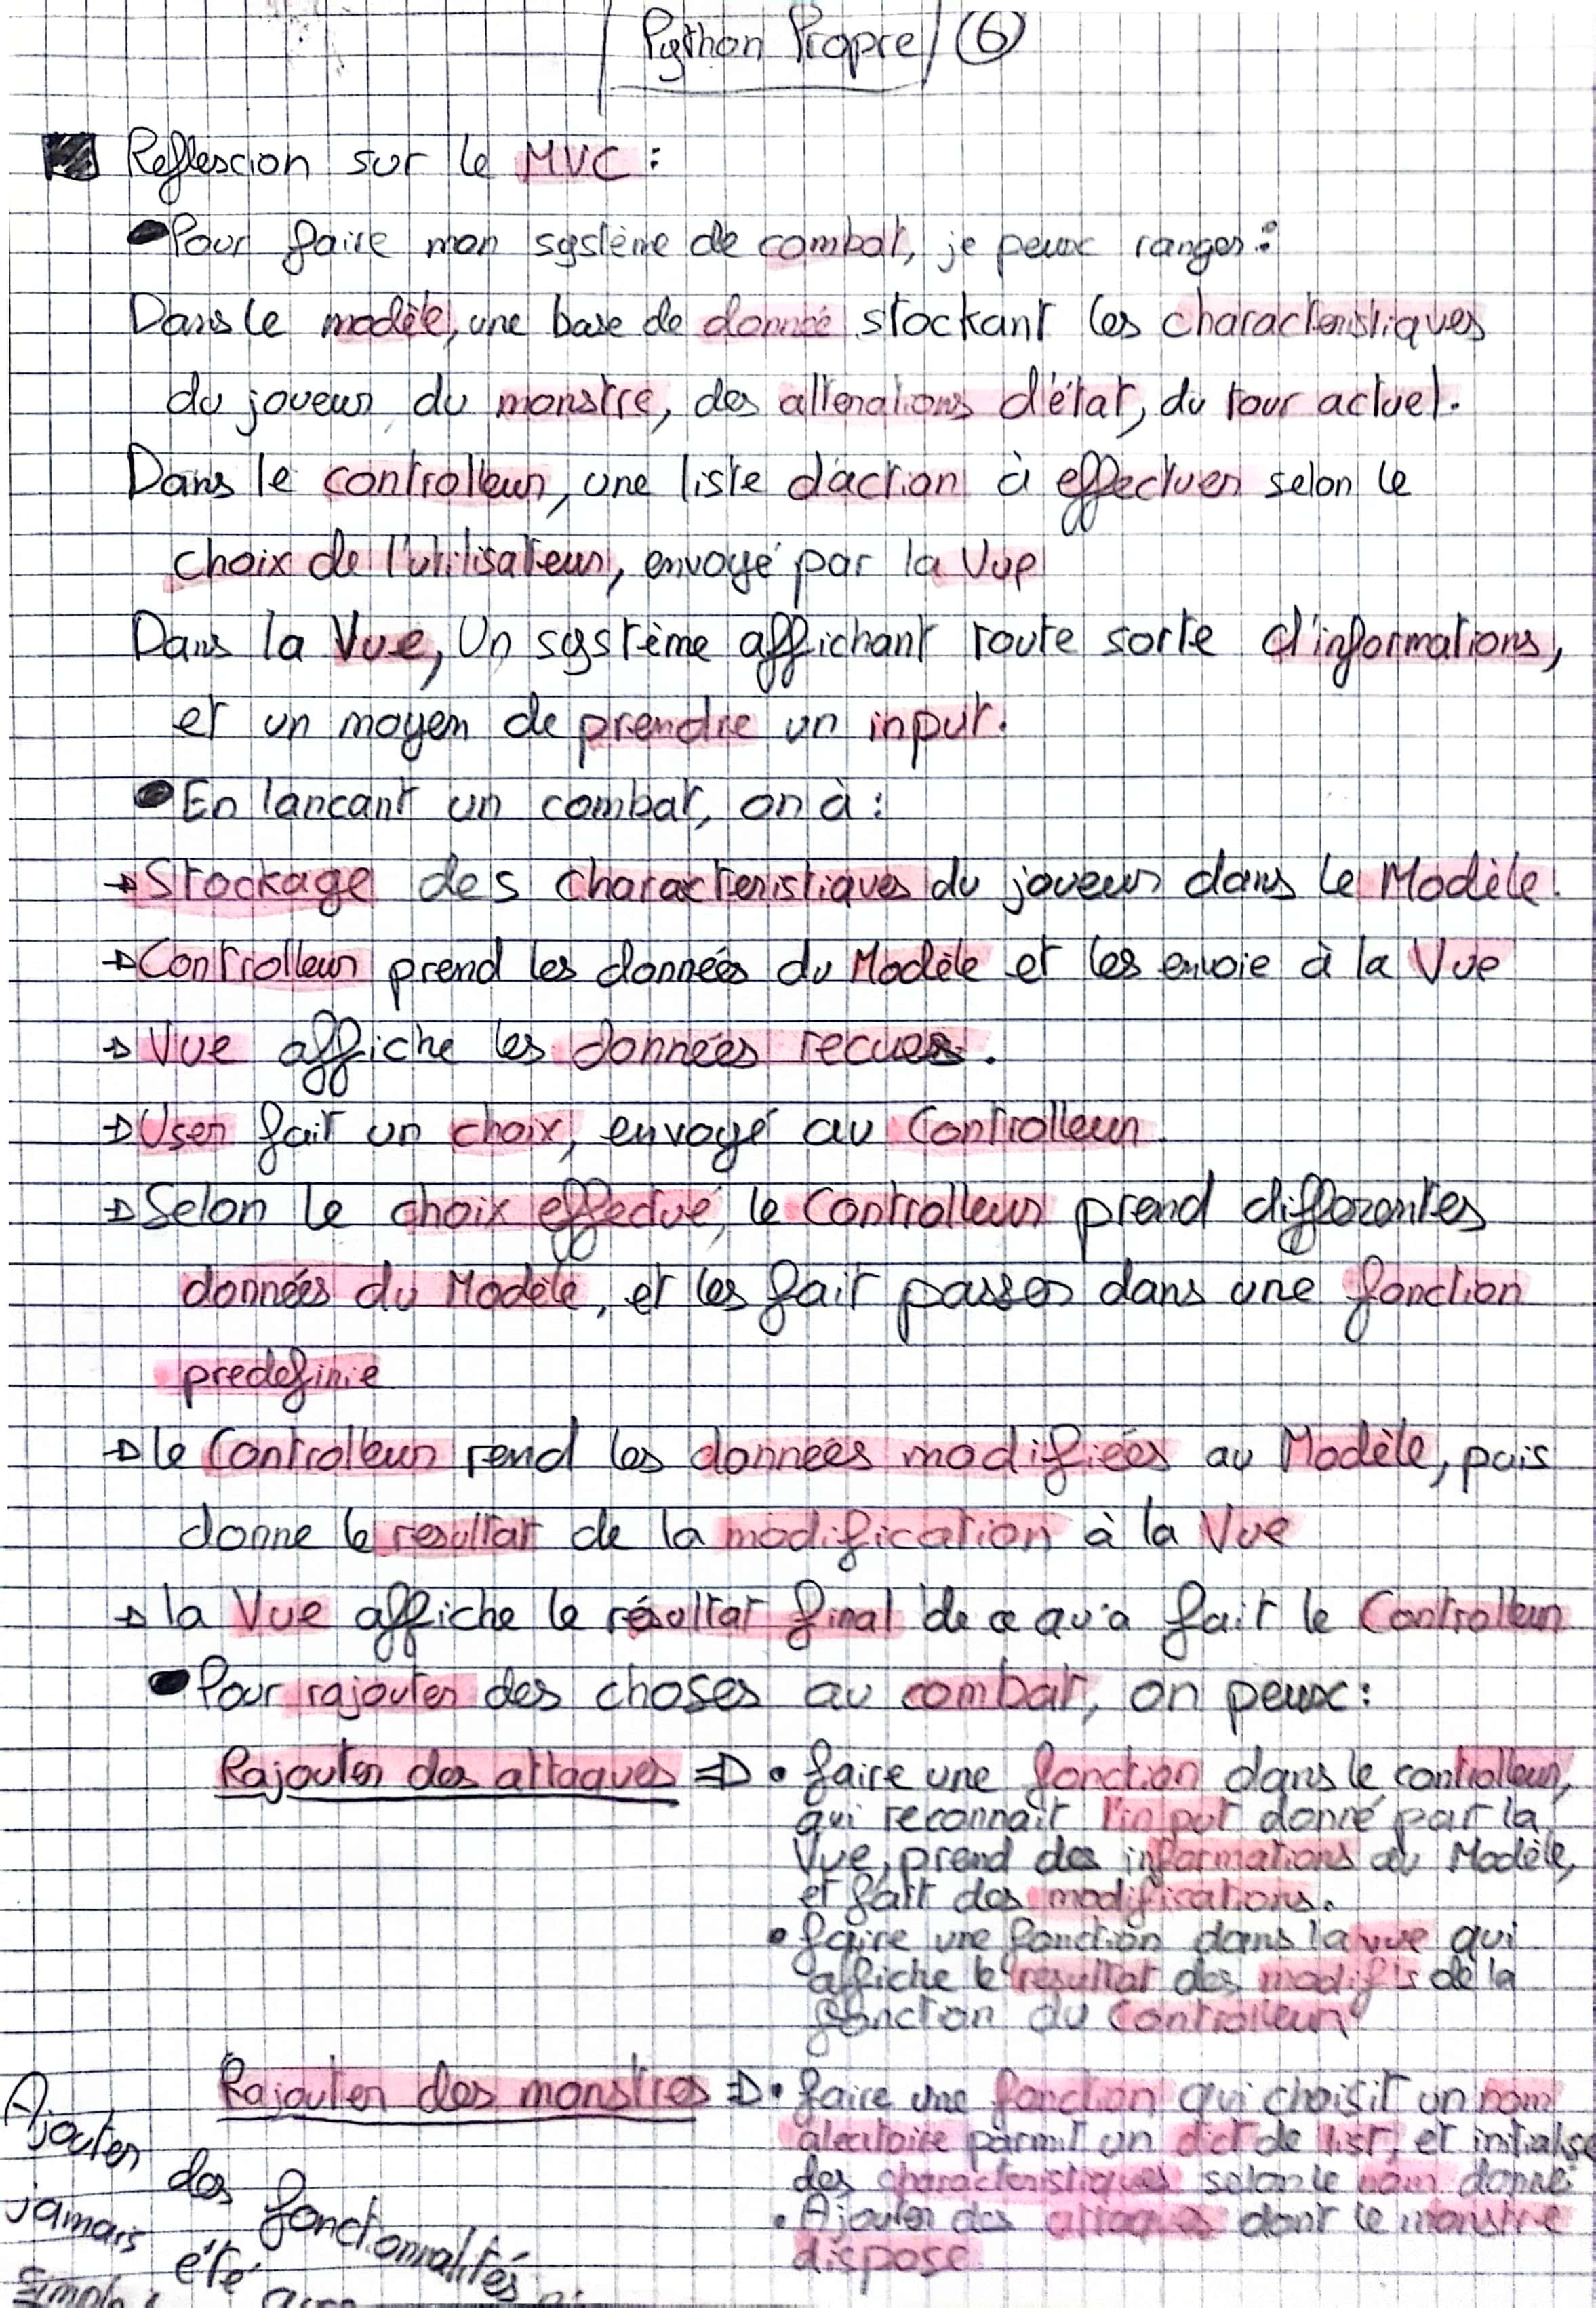 Python Propre 6
Reflexcion sur le MVC :
Pour faire mon système de combat, je peux ranger :
Dans le modèle, une base de donnée stockant les characteristiques
du joueur du monstre, des altterations d'état, du tour actuel.
Dans le controlleur, une liste d'action à effectuer selon le
choix de l'utilisateur, envoyé par la Vue
Dans la Vue, Un système affichant toute sorte d'informations,
et un moyen de prendre un input.
En lancant un combat, on à :
→ Stockage des characteristiques du joueur dans le Modèle.
→ Controlleur prend les données du Modèle et les envoie à la Vue
→ Vue affiche les données recues.
→ User fait un choix, envoyé au Controlleur.
→ Selon le choix effectué, le Controlleur prend differentes
données du Modèle, et les fait passer dans une fonction
predefinie
→ le Controlleur rend les données modifiées au Modèle, puis
donne le resultat de la modification à la Vue
→ la Vue affiche le résultat final de ce qu'a fait le Controlleur
Pour rajouter des choses au combat, on peux :
Rajouter des attaques ⇒ • faire une fonction dans le controlleur,
qui reconnait l'input donné par la
Vue, prend des informations au Modèle,
et fait des modifications.
• faire une fonction dans la vue qui
affiche le resultat des modifs de la
fonction du Controlleur
Rajouter des monstres ⇒ • faire une fonction qui choisit un nom
aleatoire parmit un dict de list, et initialise
des characteristiques selon le nom donné
• Ajouter des attaques dont le monstre
dispose
Ajouter des fonctionnalités
jamais été aussi
simple !